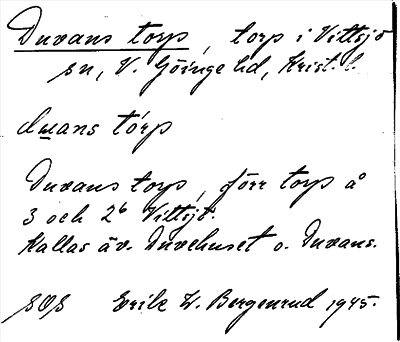 Duvans torp, torp i Vittsjö
sn, V. Göinge hd, Krist. l.
duans tórp
Duvans torp, förr torp å
3 och 26 Vittsjö.
Kallas äv. Duvehuset o. Duvans.
SOS Erik W. Bergenrud 1945.